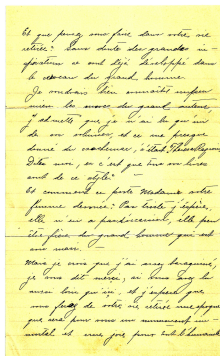 Et que pensez vous faire dans votre vie
retirée? Sans doute des grandes in-
spirations se sont déjà développé dans
le cerveau du grand homme.
Je voudrais bien connaitre un peu
mieux les œuvres du grand auteur.
J'admette que je n'ai lu qu'un
de vos volumes, et ce me presque
donné du cauchemar, c'était Thérèse Raquin.
Dites moi, es c'est que tous vos livres
sont de ce style?
Et comment se porte Madame votre
femme dernière? Pas triste j'espère,
elle n'en a pas occasion, elle peut
être fière du grand homme qui est
son mari.
Mais je crois que j'ai assez
je vous dit merci, si vous
aussi loin que ici, et j'espère que
vous de votre vie retirée une époque
que sera pour vous un monument im-
mortal et une joie pour tout l'humanité